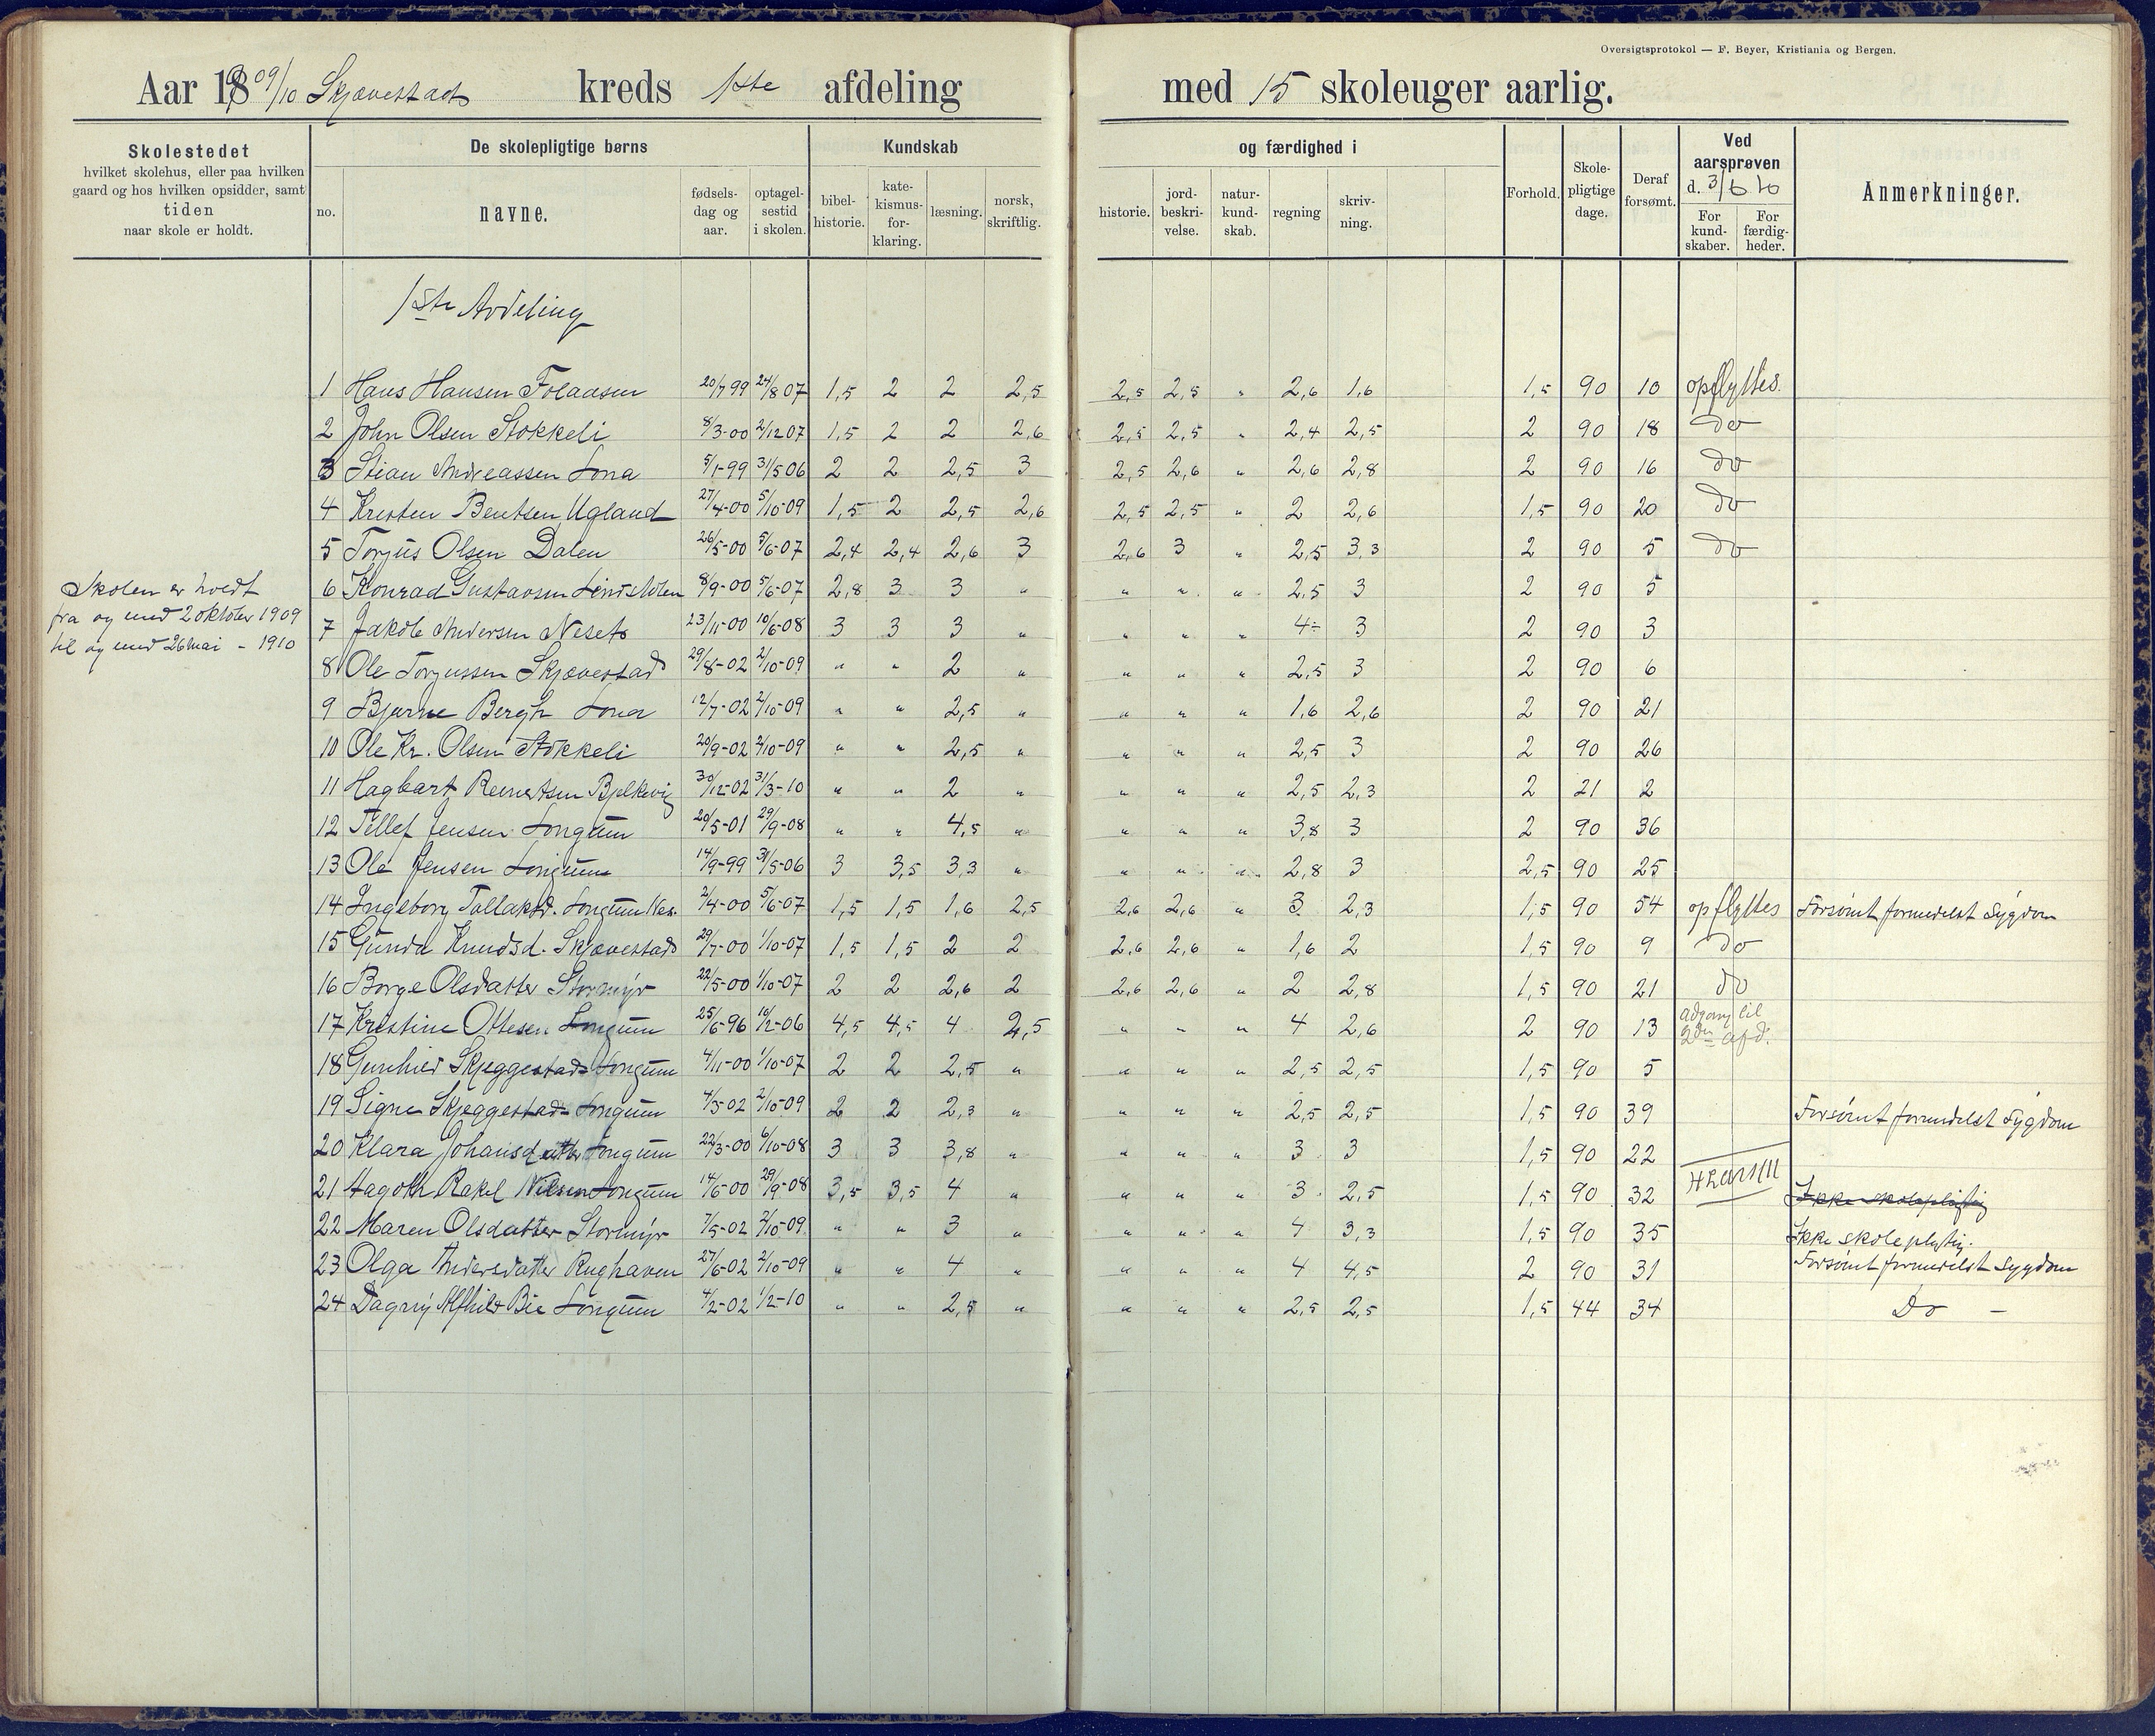 Oversigtsprotokol — F. Beyer, Kristiania og Bergen.
Aar 1909/10 Skjævestads kreds 1ste afdeling med 15 skoleuger aarlig.
Skolestedet
hvilket skolehus, eller paa hvilken
gaard og hos hvilken opsidder, samt
tiden
naar skole er holdt.
De skolepligtige børns
no. navne. fødselsdag og aar. optagelsestid i skolen.
Kundskab og færdighed i
bibelhistorie. katekismusforklaring. læsning. norsk, skriftlig. historie. jordbeskrivelse. naturkundskab. regning skrivning.
Forhold. Skolepligtige dage. Deraf forsømt.
Ved aarsprøven d. 3/6 10
For kundskaber. For færdigheder.
Anmerkninger.
1ste Avdeling
Skolen er holdt
fra og med 2 oktober 1909
til og med 26 mai - 1910
1 Hans Hansen Folaasen 20/7 99 24/8 07 1,5 2 2 2,5 2,5 2,5 " 2,6 1,6 1,5 90 10 opflyttes.
2 John Olsen Stokkeli 8/3-00 2/12 07 1,5 2 2 2,6 2,5 2,5 " 2,4 2,5 2 90 18 do
3 Stian Andreassen Lona 5/1-99 31/5 06 2 2 2,5 3 2,5 2,6 " 2,6 2,8 2 90 16 do
4 Kresten Bentsen Ugland 27/4-00 5/10-09 1,5 2 2,5 2,6 2,5 2,5 " 2 2,6 1,5 90 20 do
5 Torjus Olsen Dalen 26/5-00 5/6-07 2,4 2,4 2,6 3 2,6 3 " 2,5 3,3 2 90 5 do
6 Konrad Gustavsen 8/9-00 5/6-07 2,8 3 3 " " " " 2,5 3 2 90 5
7 Jakob Andersen Neset 23/11-00 10/6-08 3 3 3 " " " " 4÷ 3 2 90 3
8 Ole Torjussen Skjævestad 29/8-02 2/10-09 " " 2 " " " " 2,5 3 2 90 6
9 Bjarne Bergh Lona 12/7-02 2/10-09 " " 2,5 " " " " 1,6 2,6 2 90 21
10 Ole Kr. Olsen Stokkeli 20/9-02 2/10-09 " " 2,5 " " " " 2,5 3 2 90 26
11 Hagbart Reinertsen Bjelkevig 30/12-02 31/3-10 " " 2 " " " " 2,5 2,3 2 21 2
12 Tellef Jensen Longum 20/5-01 29/9-08 " " 4,5 " " " " 3,8 3 2 90 36
13 Ole Jensen Longum 14/9-99 31/5-06 3 3,5 3,3 " " " " 2,8 3 2,5 90 25
14 Ingeborg Tallaksd. Longum Nes. 2/4-00 5/6-07 1,5 1,5 1,6 2,5 2,6 2,6 " 3 2,3 1,5 90 54 opflyttes Forsømt formedelst Sygdom
15 Gunda Knudsd. Skjævestad 29/7-00 1/10-07 1,5 1,5 2 2 2,6 2,6 " 1,6 2 1,5 90 9 do
16 Borge Olsdatter Stormyr 22/5-00 1/10-07 2 2 2,6 2 2,6 2,6 " 2 2,8 1,5 90 21 do
17 Kristine Ottesen Longum 25/6-96 16/2-06 4,5 4,5 4 2,5 " " " 4 2,6 2 90 13 adgang til 2den afd.
18 Gunhild Skjeggestad Longum 4/11-00 1/10-07 2 2 2,5 " " " " 2,5 2,5 1,5 90 5
19 Signe Skjeggestad Longum 4/3-02 2/10-09 2 2 2,3 " " " " 2,5 2,5 1,5 90 39 Forsømt formedelst Sygdom
20 Klara Johansdatter Longum 22/3-00 6/10-08 3 3 3,8 " " " " 3 3 1,5 90 22
21 Hagoth Rakel Nilsen Longum 14/6-00 29/9-08 3,5 3,5 4 " " " " 3 2,5 1,5 90 32 Ikke skolepligtig
22 Maren Olsdatter Stormyr 7/5-02 2/10-09 " " 3 " " " " 4 3,3 1,5 90 35 Ikke skoleplgtig.
23 Olga Andersdatter Rughaven 27/6-02 2/10-09 " " 4 " " " " 4 4,5 2 90 31 Forsømt formedelst Sygdom
24 Dagny Alfhild Bie Longum 4/2-02 1/2-10 " " 2,5 " " " " 2,5 2,5 1,5 44 34 Do -